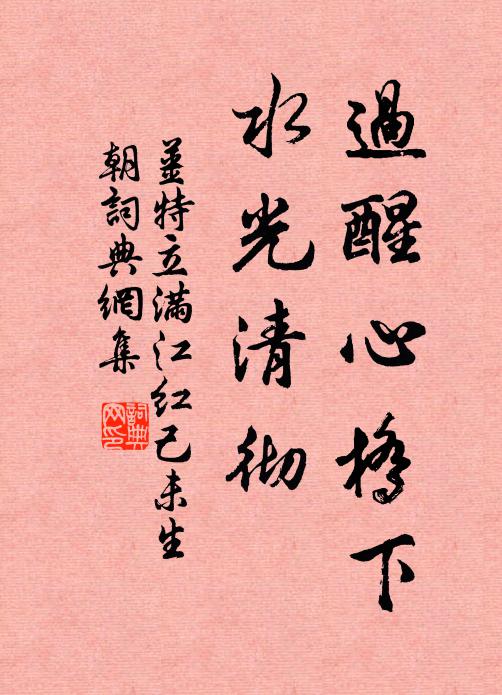 過醒心橋下
水光清彻
姜特立满江红己未生
朝詞典網集
詞典
网印